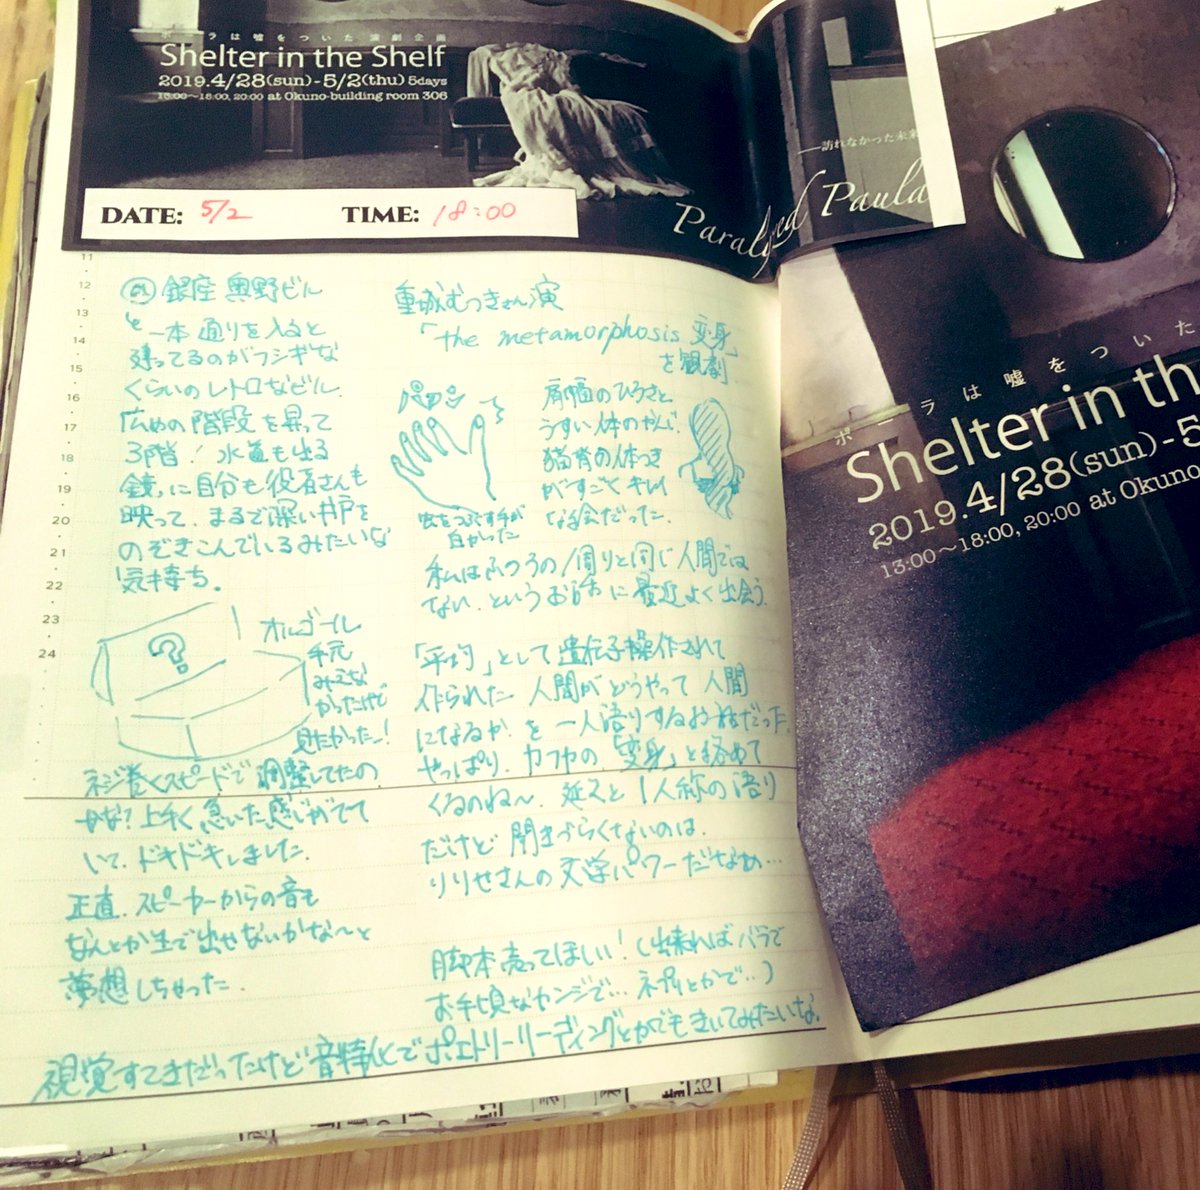 ポーラは嘘をついた演劇企画
Shelter in the Shelf
2019.4/28(sun)-5/2(thu) 5days
13:00～18:00, 20:00 at Okuno-building room 306
訪れなかった未来
Paralyzed Paula
DATE: 5/2 TIME: 18:00
11
12
13
14
15
16
17
18
19
20
21
22
23
24
銀座 奥野ビル
一本通りを入ると
建ってるのがフシギな
くらいのレトロなビル.
広めの階段を昇って
3階! 水道も出る
鏡に自分も役者さんも
映って、まるで深い井戸を
のぞきこんでいるみたいな
気持ち。
?
オルゴール
手元
みえな
かったけど
見たかったー!
ネジ巻くスピードで調整してたの
かな? 上手く急いた感じがでて
いて、ドキドキしました.
正直、スピーカーからの音も
なんとか生で出せないかな～と
夢想しちゃった.
重城むつきさん演
「the metamorphosis 変身」
を観劇.
虫をつぶす手が
白かった
肩幅のひろさと
うすい体のかんじ.
猫背の体つき
がすごくキレイ
な絵だった.
私はふつうの/周りと同じ人間では
ない、というお話に最近よく出会う.
「平均」として遺伝子操作されて
作られた人間がどうやって人間
になるか を一人語りするお話だった.
やっぱり、カフカの「変身」と絡めて
くるのね～. 延々と1人称の語り
だけど聞きづらくないのは.
りりせさんの文学パワーだなぁ…
脚本売ってほしい! (出来ればバラで
お手頃なカンジで… ネプリとかで…)
視覚すてきだったけど音特化でポエトリーリーディングとかでもきいてみたいな.
ポーラは嘘をついた
Shelter in th
2019.4/28(sun)-5
13:00～18:00, 20:00 at Okuno